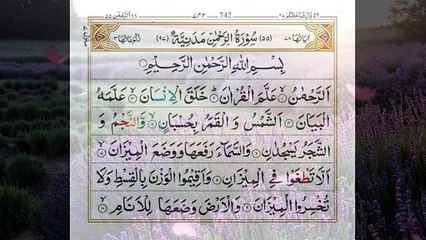 742 ٧٤٢
اٰيَاتُهَا ٧٨ (٥٥) سُوْرَةُ الرَّحْمٰنِ مَدَنِيَّةٌ (٩٧) رُكُوْعَاتُهَا ٣
بِسْمِ اللهِ الرَّحْمٰنِ الرَّحِيْمِ
اَلرَّحْمٰنُ ۙ عَلَّمَ الْقُرْاٰنَ ؕ خَلَقَ الْاِنْسَانَ ۙ عَلَّمَهُ
الْبَيَانَ ۙ اَلشَّمْسُ وَ الْقَمَرُ بِحُسْبَانٍ ۙ وَّالنَّجْمُ وَ
الشَّجَرُ يَسْجُدٰنِ ۙ وَالسَّمَآءَ رَفَعَهَا وَوَضَعَ الْمِيْزَانَ ۙ
اَلَّا تَطْغَوْا فِي الْمِيْزَانِ ۙ وَاَقِيْمُوا الْوَزْنَ بِالْقِسْطِ وَلَا
تُخْسِرُوا الْمِيْزَانَ ۙ وَالْاَرْضَ وَضَعَهَا لِلْاَنَامِ ۙ